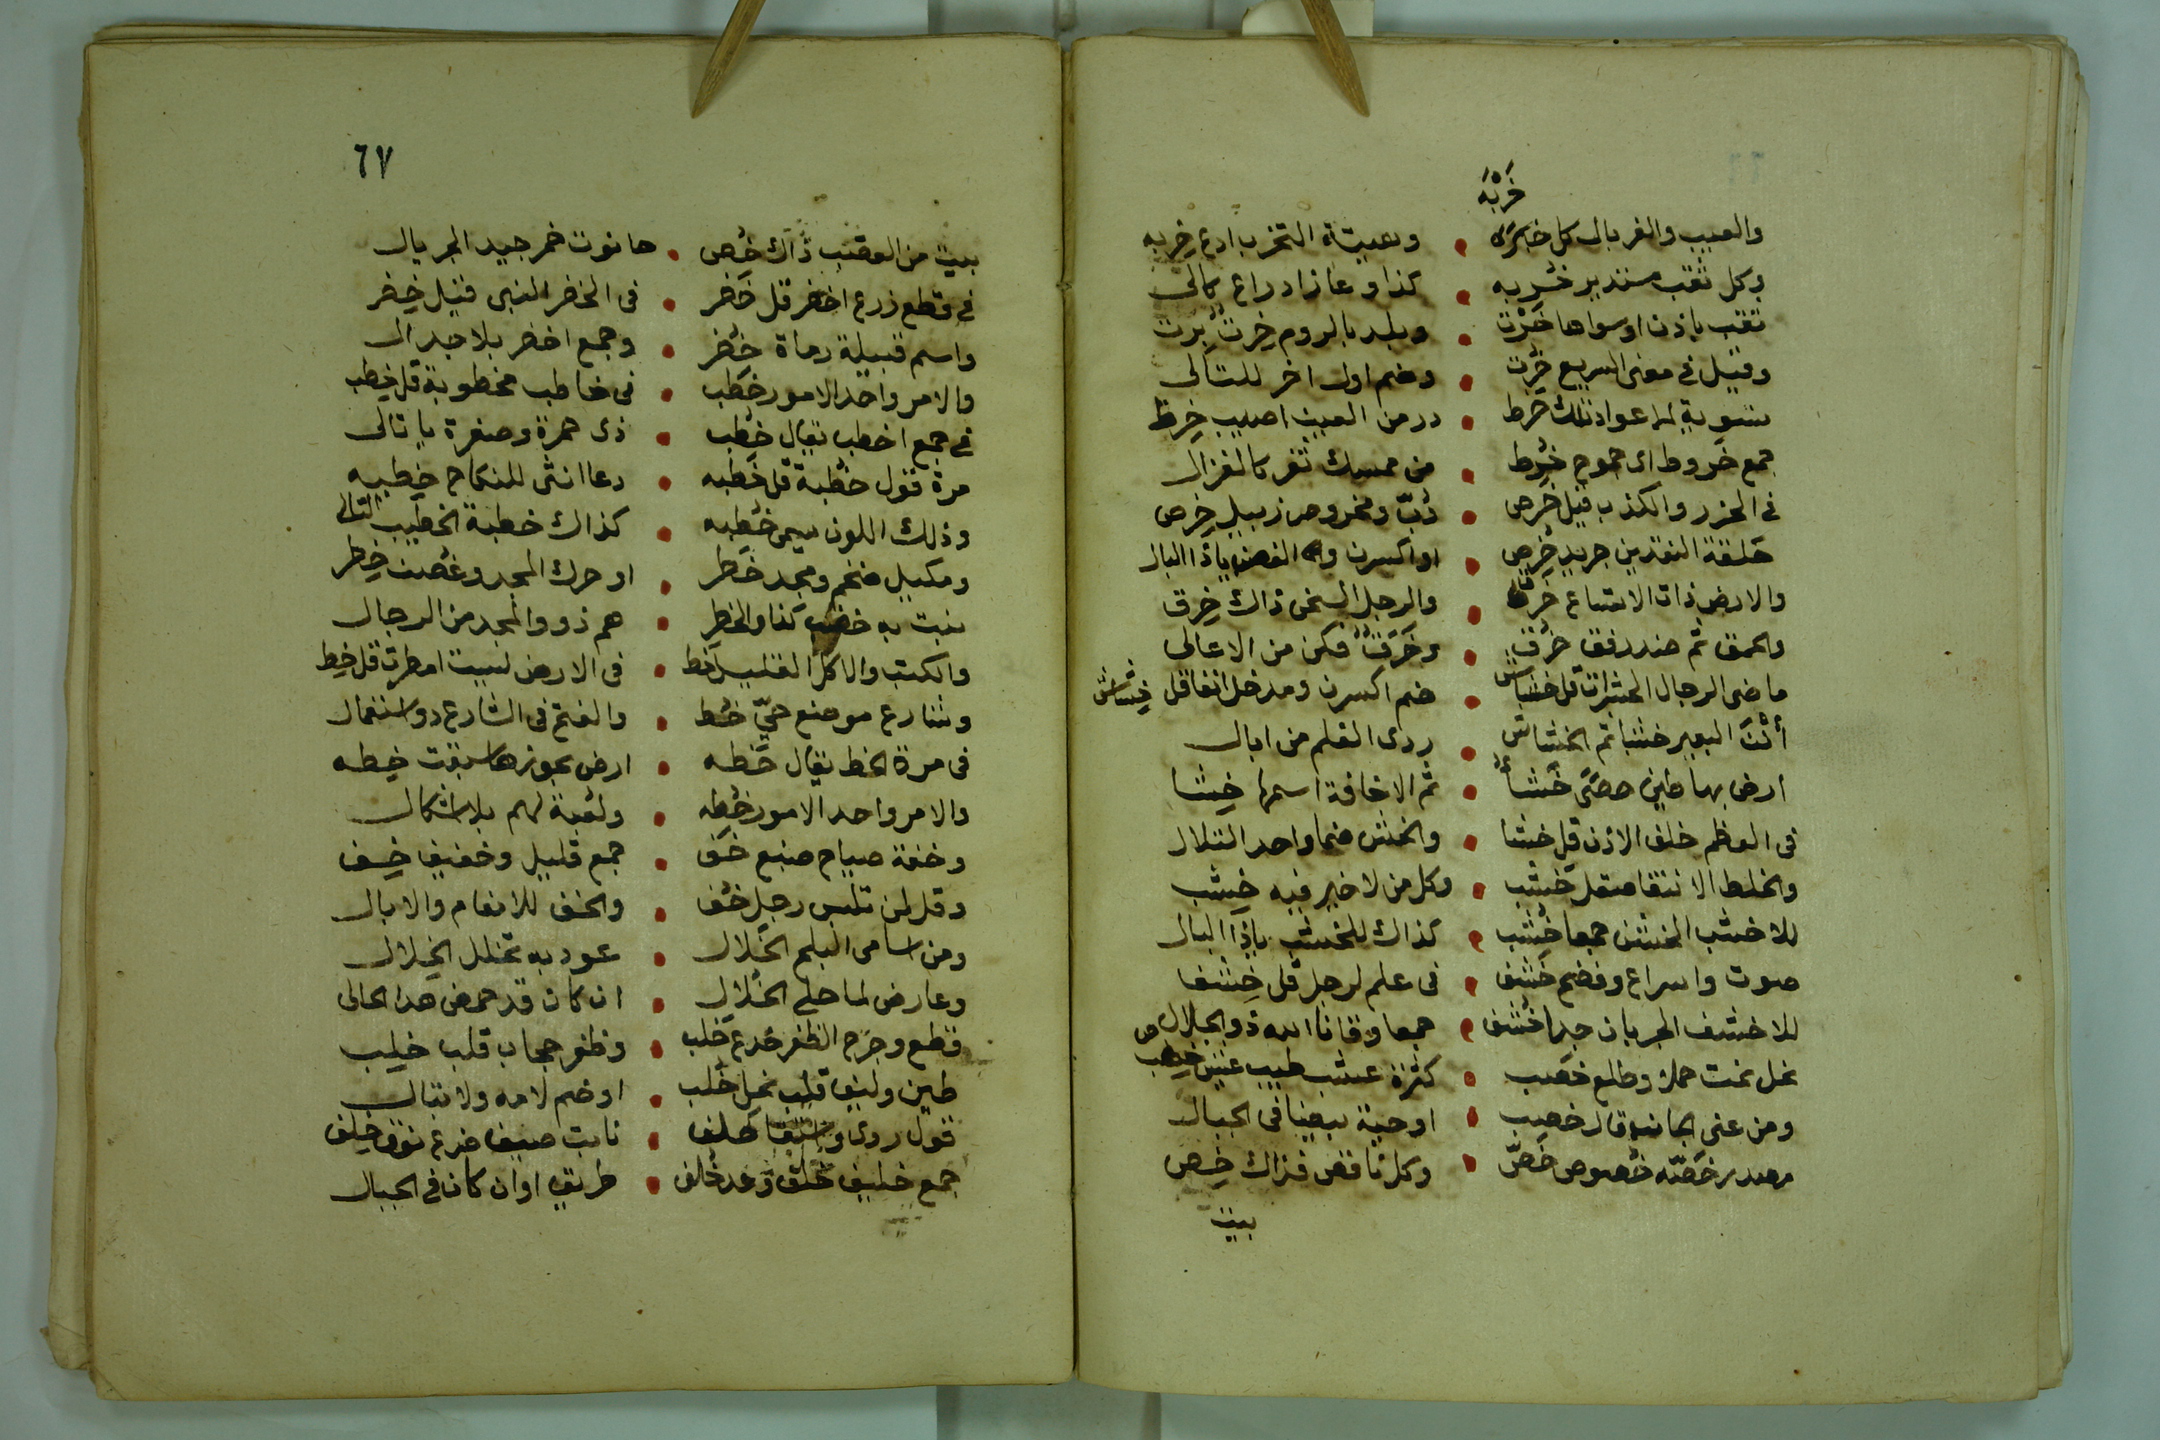 خَرْبَه
والعيب والغربال كل خبره • وهيئة التخرب ادع خِربه
وكل ثقب مستدير خُربه • كذا وعا زاد راع يمالى
ثقب باذن او سواها خَرْت • وبلد بالروم خِرتُ بِرت
وقيل فى معنى السريع خُرت • وضم اول اخر للتالى
جمع خَروط اى جموح خُرط • من ممسك ثغر كالغزال
فى الحزر والكذب قيل خَرص • دُبّ ومخروص زبيل خِرص
حلقة النقدين جريد خُرص • او اكسرن وله الغصن ياذا البال
والارض ذات الاتساع خَرق • والرجل السخى ذاك خِرق
والحمق ثم ضد رفق خُرق • وخَرَقٌ فكن من الاعالى
ماضى الرجال الحشرات قل خشاش • ضم اكسرن ومدخل انفا قل خِشاش
البعير خشبا ثم الخشاش • ردى القلم من ابال
ارض بها طين حصَى خَشا • ثم الاخافة اسمها خِشا
فى العظم خلف الاذن قل خشا • والخشن ضما واحد التلال
والخلط الانتقا صقل خَشب • وكل من لا خير فيه خِشب
للاخشب الخشن جمعا خُشب • كذاك للخشب ياذا البال
صوت واسراع وفضح خَشف • فى علم لرجل قل خِشف
للاخشف الجربان جدا خُشف • جمعا وقانا الله ذو الجلال
نخل نمت حملا وطلع خَصب • كثرة عشب طيب عيش خِصب
ومن عنى الجانب قال خصب • او حية بيضا فى الجبال
مصدر خَصّه خُصوص خَصّ • وكل ناقص فذاك خِص
بيت
٦٧
بيت من القصب ذاك خُص • حانوت خمر جيد الجريال
فى قطع زرع اخضر قل خَضر • فى الخضر النبى قيل خِضر
واسم قبيلة رماة خُضر • وجمع اخضر بلا جدال
والامر واحد الامور خَطب • فى خاطب مخطوبة قل خِطب
فى جمع اخطب يقال خُطب • ذى حمرة وصفرة يا تالى
مرة قول خطبة قل خَطبه • دعا انثى للنكاح خِطبه
وذلك اللون يسمى خُطبه • كذاك خطبة الخطيب التالى
ومكيل ضخم ومجد خَطر • او حرك المجد وغصن خِطر
نبت به خضب كذا والخطر • هم ذوو المجد من الرجال
والكتب والاكل القليل خَط • فى الارض ليست امطرت قل خِط
وشارع موضع حيّ خُط • والفتح فى الشارع ذو استعمال
فى مرة الخط يقال خَطه • ارض بحوزها سبقت خِطه
والامر واحد الامور خُطه • ولعبة لهم بلا اشكال
وخفة صياح ضبع خَف • جمع قليل وخفيف خِف
وقل لمن تلبس رجل خُف • والخف للانعام والابال
ومن اسامى البلح الخَلال • عود به تخلل الخِلال
وعارض لما حلى الخُلال • ان كان قد حمض هذا الحالى
قطع وجرح الظفر خدع خَلب • وظفر حجاب قلب خِلب
طين وليف قلب نخل خُلب • او ضم لامه ولا تبال
قول ردى خَلف • نابت صيف ضرع نوق خِلف
جمع خليف خَلق وعد خُلف • طريق او ان كان فى الجبال